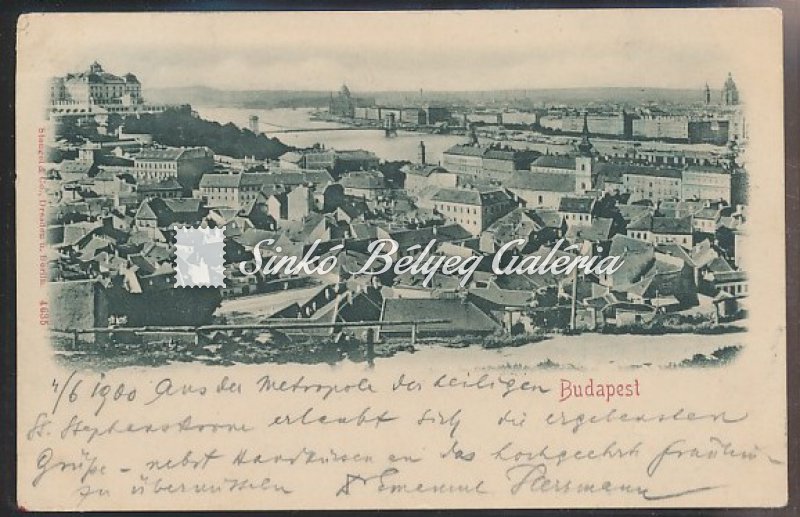 Stengel & Co., Dresden u. Berlin. 4635
Sinkó Bélyeg Galéria
Budapest
4/6 1900 Aus der Metropole der heiligen
St. Stephanskrone erlaubt sich die ergebensten
Grüße - nebst Handküssen an das hochgeehrte Fräulein
zu übermitteln Emanuel Herrmann